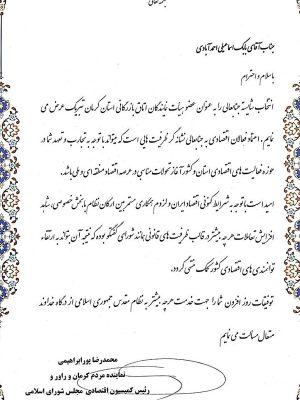 بسمه تعالی
جناب آقای بابک اسماعیلی احمدآبادی
با سلام و احترام
انتخاب شایسته جنابعالی را به عنوان عضو هیات نمایندگان اتاق بازرگانی استان کرمان تبریک عرض می
نمایم. اعتماد فعالان اقتصادی به جنابعالی نشانه گر ظرفیت هایی است که میتواند با توجه به تجارب و تعهد شما در
حوزه فعالیت های اقتصادی استان و کشور آغاز تحولات مناسبی در عرصه اقتصاد منطقه ای و ملی باشد.
امید است با توجه به شرایط کنونی اقتصاد ایران و لزوم همکاری مستمر بین ارکان نظام با بخش خصوصی، شاهد
افزایش تعاملات هرچه بیشتر در قالب ظرفیت های قانونی مانند شورای گفتگو بوده که نتیجه آن بتواند به ارتقاء
توانمندی های اقتصادی کشور کمک منتهی گردد.
توفیقات روز افزون شما را جهت خدمت هرچه بیشتر به نظام مقدس جمهوری اسلامی از درگاه خداوند
متعال مسالت می نمایم
محمدرضا پورابراهیمی
نماینده مردم کرمان و راور و
رئیس کمیسیون اقتصادی مجلس شورای اسلامی